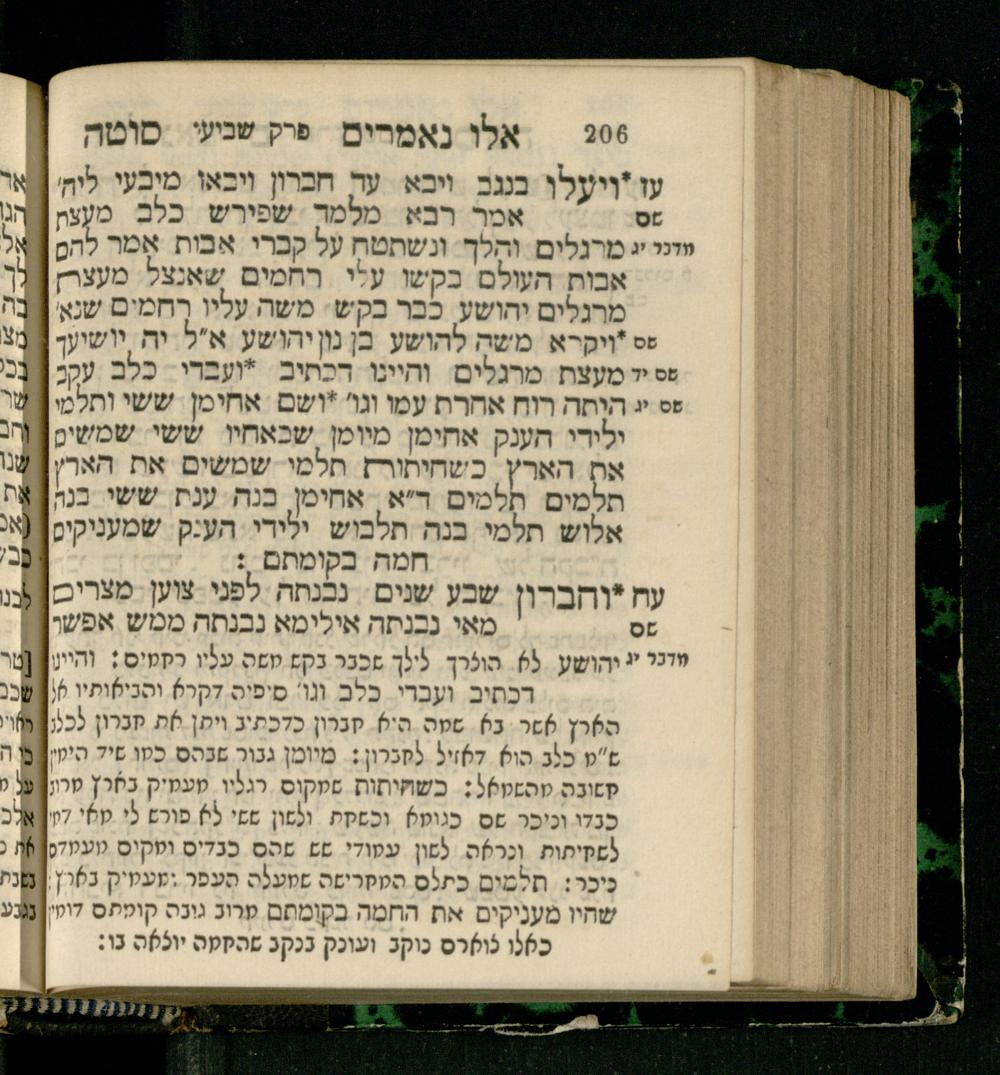 206 אלו נאמרים פרק שביעי סוטה
עז *ויעלו בנגב ויבא עד חברון ויבאו מיבעי ליה'
שם אמר רבא מלמד שפירש כלב מעצת
מדבר יג מרגלים והלך ונשתטח על קברי אבות אמר להם
אבות העולם בקשו עלי רחמים שאנצל מעצת
מרגלים יהושע כבר בקש משה עליו רחמים שנא'
שם *ויקרא משה להושע בן נון יהושע א"ל יה יושיעך
שם יד מעצת מרגלים והיינו דכתיב *ועבדי כלב עקב
שם יג היתה רוח אחרת עמו וגו' *ושם אחימן ששי ותלמי
ילידי הענק אחימן מיומן שבאחיו ששי שמשים
את הארץ כשחיתות תלמי שמשים את הארץ
תלמים תלמים ד"א אחימן בנה ענת ששי בנה
אלוש תלמי בנה תלבוש ילידי הענק שמעניקים
חמה בקומתם :
עח *וחברון שבע שנים נבנתה לפני צוען מצרים
שם מאי נבנתה אילימא נבנתה ממש אפשר
מדבר יג יהושע לא הוצרך לילך שכבר בקש משה עליו רחמים: והיינו
דכתיב ועבדי כלב וגו' סיפיה דקרא והביאותיו אל
הארץ אשר בא שמה היא חברון כדכתיב ויתן את חברון לכלב
ש"מ כלב הוא דאזיל לחברון: מיומן גבור שבהם כמו שיד הימין
חשובה מהשמאל: כשחיתות שמקום רגליו מעמיק בארץ מרוב
כבדו וניכר שם כגומא וכשחת ולשון ששי לא פורש לי מאי דמי
לשחיתות ונראה לשון עמודי שש שהם כבדים ומקום מעמדם
ניכר: תלמים כתלם המחרישה שמעלה העפר ומעמיק בארץ:
שהיו מעניקים את החמה בקומתם מרוב גובה קומתם דומין
כאלו צוארם נוקב ועונק בנקב שהחמה יוצאה בו: